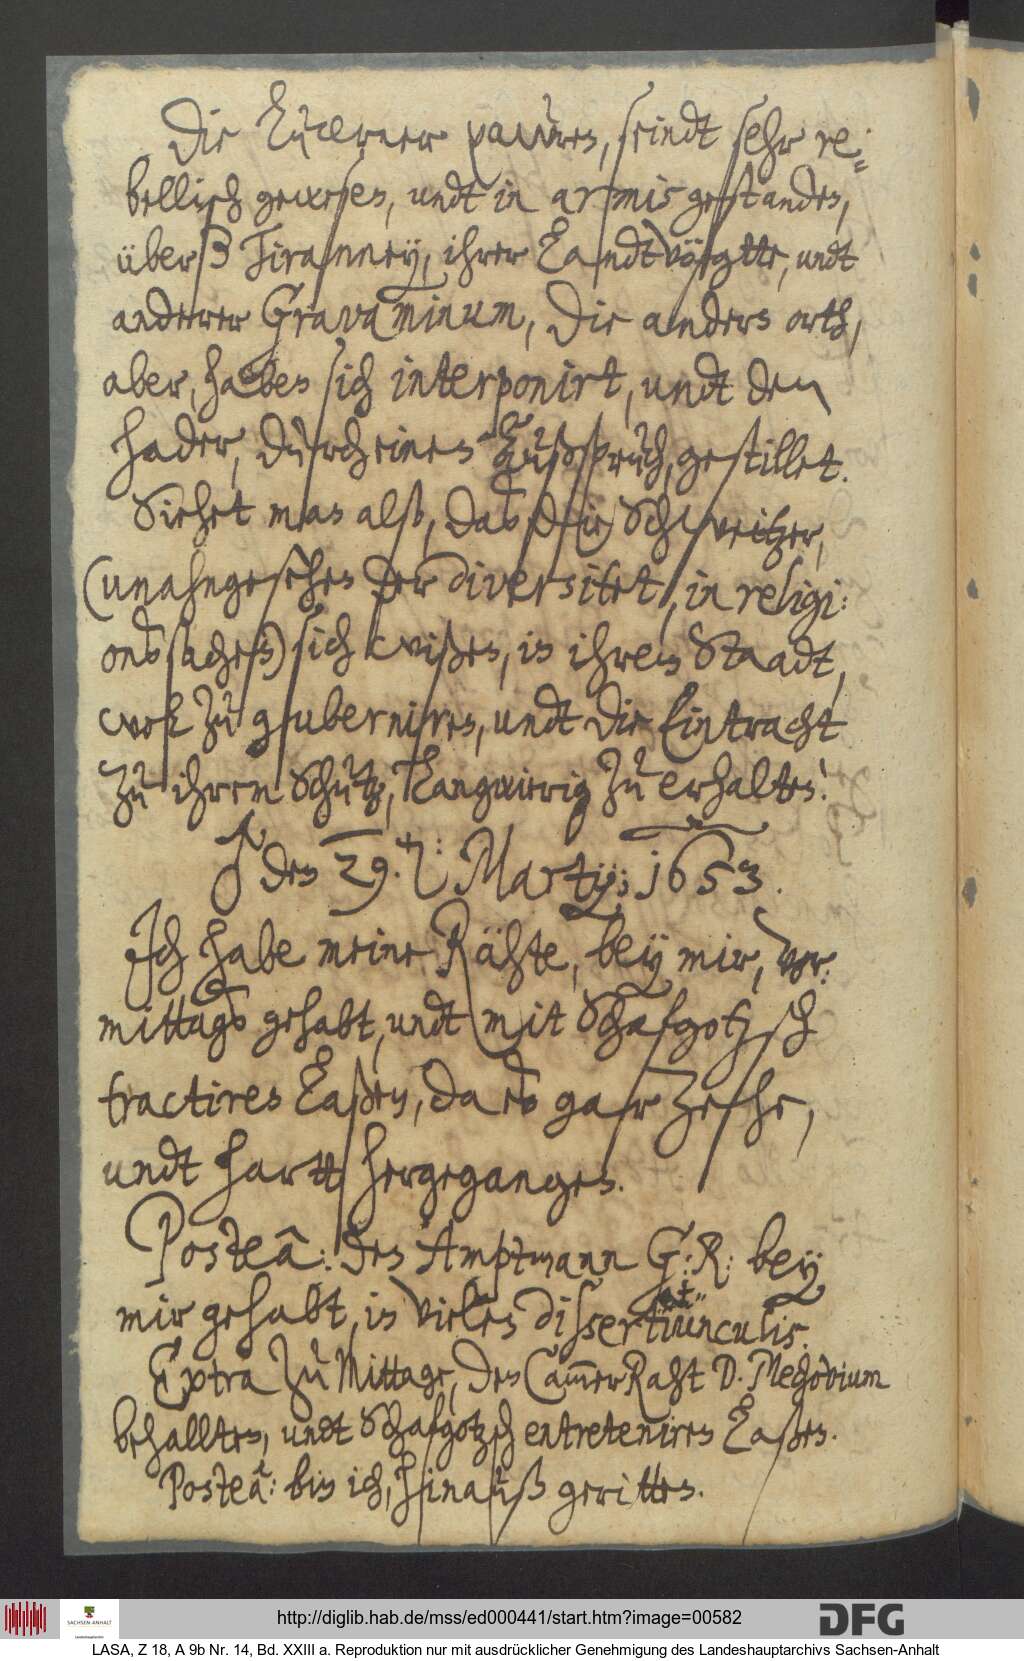 Die Lucerner pawren, seindt sehr re¬
bellisch gewesen, undt in armis gestanden,
überß Tiranney, ihrer Landtvögtte, undt
anderer Gravaminum, Die andern orth,
aber, haben sich interponirt, undt den
hader, durch einen Außspruch, gestillet.
Siehet man alß, das die Schweitzer,
(unahngesehen der diversitet, in religi:
onßsachen) sich wißen, in ihrem Staadt,
wol zu guberniren, undt die Eintracht
zu ihrem Schutz, langwierig zu erhalten!
♂ den 29. Martij; 1653.
Ich habe meine Rähte, bey mir, vor¬
mittags gehabt, undt mit Schafgotzsch
tractiren laßen, da es gar zehe,
undt hartt hergegangen.
Posteâ: den Amptmann G: R: bey
mir gehabt, in vielen dissertiunculis.
Extra zu Mittage, den CammerRaht D. Mechovium
behallten, undt Schafgotzsch entreteniren laßen.
Posteâ: bin ich, hinauß geritten.
http://diglib.hab.de/mss/ed000441/start.htm?image=00582
SACHSEN-ANHALT
DFG
LASA, Z 18, A 9b Nr. 14, Bd. XXIII a. Reproduktion nur mit ausdrücklicher Genehmigung des Landeshauptarchivs Sachsen-Anhalt